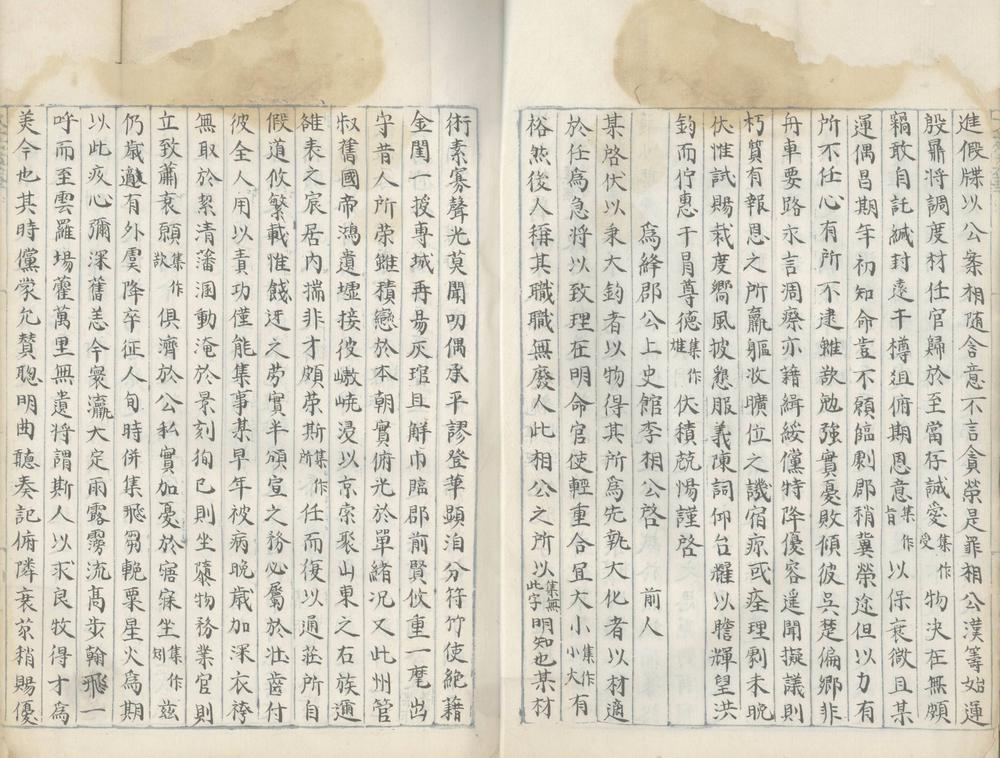 進假牒以公案相隨含意不言貪榮是罪相公漢籌始運
殷鼎將調度材任官歸於至當存誠愛集作受物決在無頗
輒敢自託緘封遠干樽俎俯期恩意集作旨以保衰微且某
運偶昌期年初知命豈不願臨劇郡稍冀榮途但以力有
所不任心有所不逮雖欲勉強實憂敗傾彼吳楚偏鄉非
舟車要路求言凋瘵亦藉緝綏儻特降優容遥聞擬議則
朽質有報恩之所羸軀收曠位之譏宿瘵或痊理劇未晚
伏惟試賜裁度嚮風披懇服義陳詞仰台耀以瞻輝望洪
鈞而佇惠干冒尊德集作雄伏積兢惕謹啓
爲絳郡公上史館李相公啓　前人
某啓伏以秉大鈞者以物得其所爲先執大化者以材適
於任爲急將以致理在明命官使輕重合宜大小集作小大有
裕然後人稱其職職無廢人此相公之所以集無此字明知也某材
術素寡聲光莫聞叨偶承平謬登華顯洎分符竹使絶籍
金閨一授專城再昜灰琯且解巾臨郡前賢攸重一麾出
守昔人所榮雖積戀於本朝實俯光於單緒况又此州管
叔舊國帝鴻遺墟接彼嶔嶢浸以京索聚山東之右族通
雒表之宸居内揣非才頗榮斯集作所任而復以通莊所自
假道攸繁載惟餞迓之勞實半頒宣之務必屬於壯齒付
彼全人用以責功僅能集事某早年被病晚歲加深衣袴
無取於絜清藩溷動淹於景刻徇已則坐隳物務業官則
立致蕭衰願集作欲俱濟於公私實加憂於寤寐坐集作矧兹
仍歲邀有外虞降卒征人旬時併集飛芻輓粟星火爲期
以此疚心彌深舊恙今寰瀛大定雨露霶流髙步翰飛一
呼而至雲羅塲藿萬里無遺將謂斯人以求良牧得才爲
美今也其時儻蒙允賛聰明曲聽奏記俯隣衰苶稍賜優